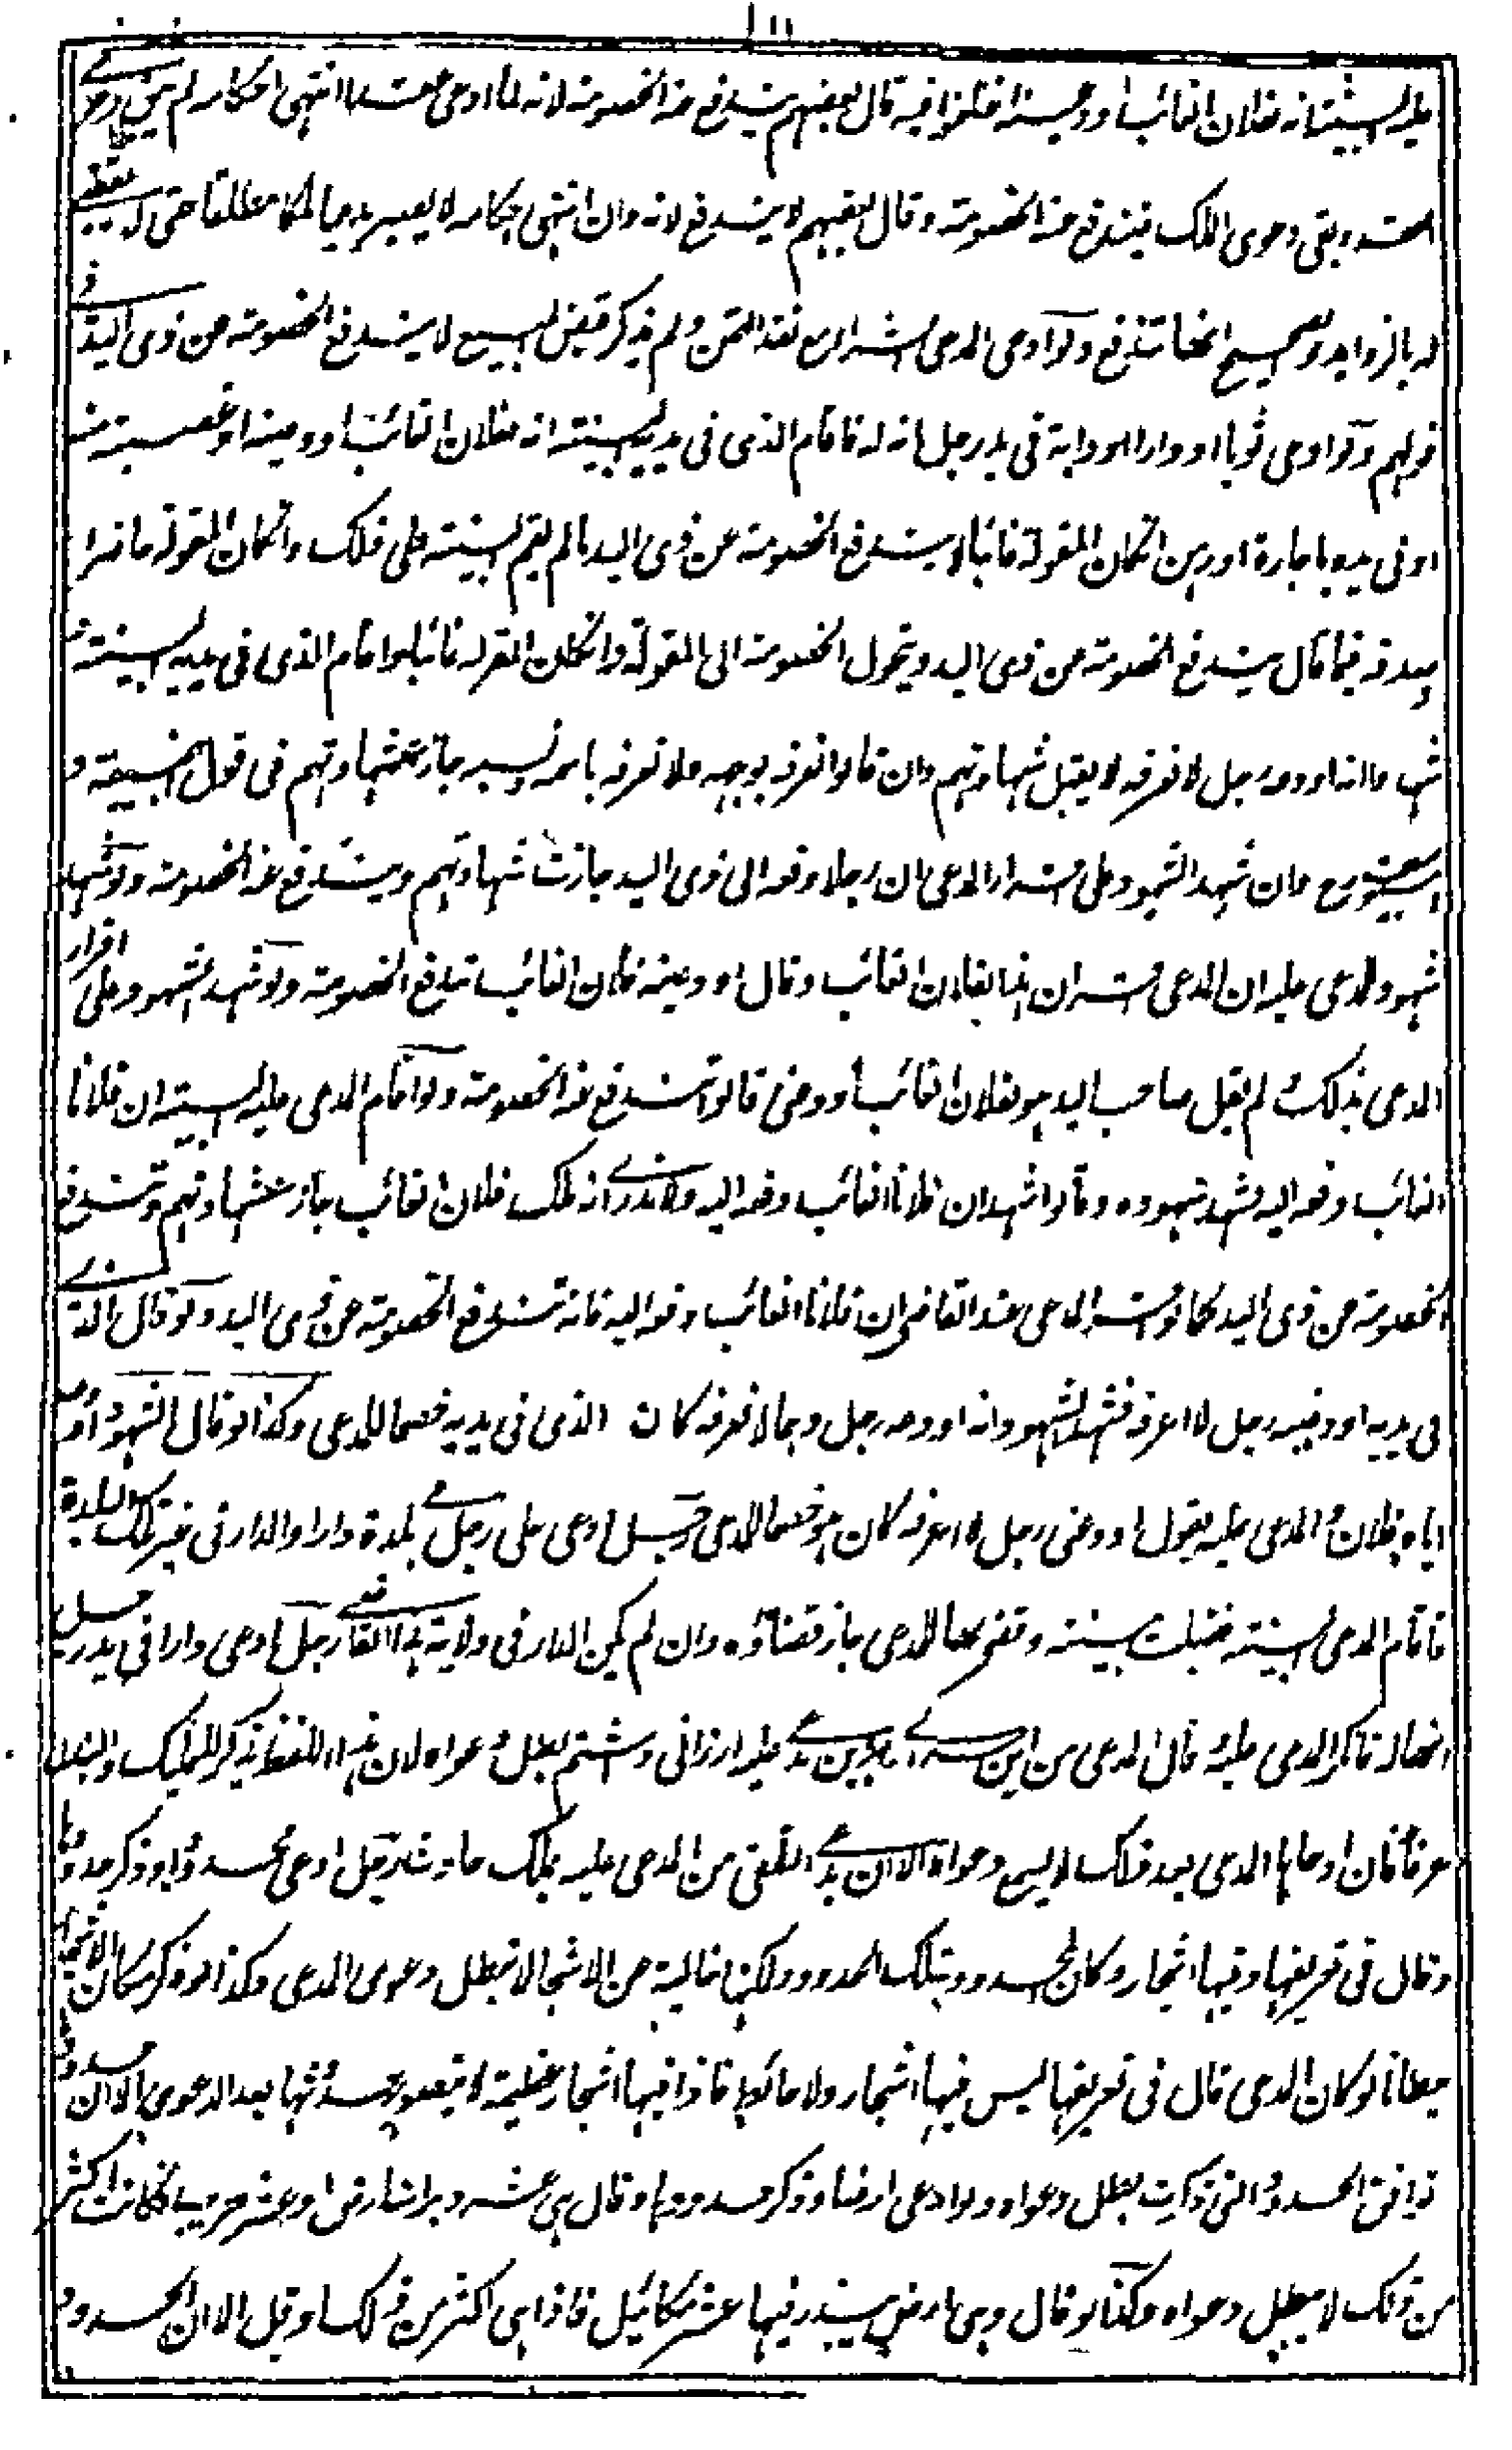 ١١١
عليه البينة انه لفلان الغائب اودعنيه اختلفوا فيه قال بعضهم يندفع عنه الخصومة لانه لما ادعى عقدا انتهى احكامه لم يبق دعوى
العقد وبقى دعوى الملك فيندفع عنه الخصومة وقال بعضهم لا يندفع لانه وان انتهى احكامه لا يصير مدعيا ملكا مطلقا حتى لا يقضى
له بالزوائد والصحيح انها تندفع ولو ادعى المدعى الشراء مع نقد الثمن ولم يذكر قبض المبيع لا يندفع الخصومة عن ذى اليد فى
قولهم ولو ادعى ثوبا او دارا او دابة فى يد رجل انه له فاقام الذى فى يديه البينة انه لفلان الغائب اودعنيه او غصبته منه
او فى يده باجارة او رهن ان كان المقر له غائبا لا يندفع الخصومة عن ذى اليد ما لم يقم البينة على ذلك وان كان المقر له حاضرا
وصدقه فيما قال يندفع الخصومة عن ذى اليد ويتحول الخصومة الى المقر له وان كان المقر له غائبا واقام الذى فى يديه البينة
شهدوا انه اودعه رجل لا نعرفه لا يقبل شهادتهم وان قالوا نعرفه بوجهه ولا نعرفه باسمه ونسبه جازت شهادتهم فى قول ابى حنيفة و
ابى يوسف رح وان شهد الشهود على اقرار المدعى ان رجلا دفعه الى ذى اليد جازت شهادتهم ويندفع عنه الخصومة ولو شهد
شهود المدعى عليه ان المدعى اقر ان هذا لفلان الغائب وقال اودعنيه فلان الغائب تندفع الخصومة ولو شهد الشهود على اقرار
المدعى بذلك ولم يقل صاحب اليد هو لفلان الغائب اودعنى قالوا تندفع عنه الخصومة ولو اقام المدعى عليه البينة ان فلانا
الغائب دفعه اليه فشهد شهوده وقالوا نشهد ان فلانا الغائب دفعه اليه ولا ندرى انه ملك فلان الغائب جازت شهادتهم وتندفع
الخصومة عن ذى اليد كما لو اقر المدعى عند القاضى ان فلانا الغائب دفعه اليه فانه تندفع الخصومة عن ذى اليد ولو قال الذى
فى يديه اودعنيه رجل لا اعرفه فشهد الشهود انه اودعه رجل وهما لا نعرفه كان الذى فى يديه خصما للمدعى وكذا لو قال الشهود اودعه
اياه فلان والمدعى عليه يقول اودعنى رجل لا اعرفه كان هو خصما للمدعى رجل ادعى على رجل فى بلدة دارا والدار فى غير تلك البلدة
فاقام المدعى البينة فقبلت بينته وقضى بها للمدعى جاز قضاؤه وان لم يكن الدار فى ولاية هذا القاضى رجل ادعى دارا فى يد رجل
انها له فانكر المدعى عليه قال المدعى من اين سراى بدين مدعى عليه ارزانى داشتم بطل دعواه لان هذا اللفظ يذكر للتمليك
عرفا فان ادعاها المدعى بعد ذلك لا يسمع دعواه الا ان يدعى التلقى من المدعى عليه بملك حادث رجل ادعى محدودا وذكر حدودها
وقال فى تعريفها وفيها اشجار وكان المحدود بتلك الحدود ولكنها خالية عن الاشجار لا تبطل دعوى المدعى وكذا لو ذكر مكان الاشجار
حيطانا ولو كان المدعى قال فى تعريفها ليس فيها اشجار ولا حائط فاذا فيها اشجار عظيمة لا يتصور حدوثها بعد الدعوى الا ان حدودها
توافق الحدود التى ذكرت بطل دعواه ولو ادعى ارضا وذكر حدودها وقال هى عشر دبرات ارض او عشر جريب فكانت اكثر
من ذلك لا يبطل دعواه وكذا لو قال وهى ارض يبذر فيها عشر مكائيل فاذا هى اكثر من ذلك او قبل الا ان الحدود